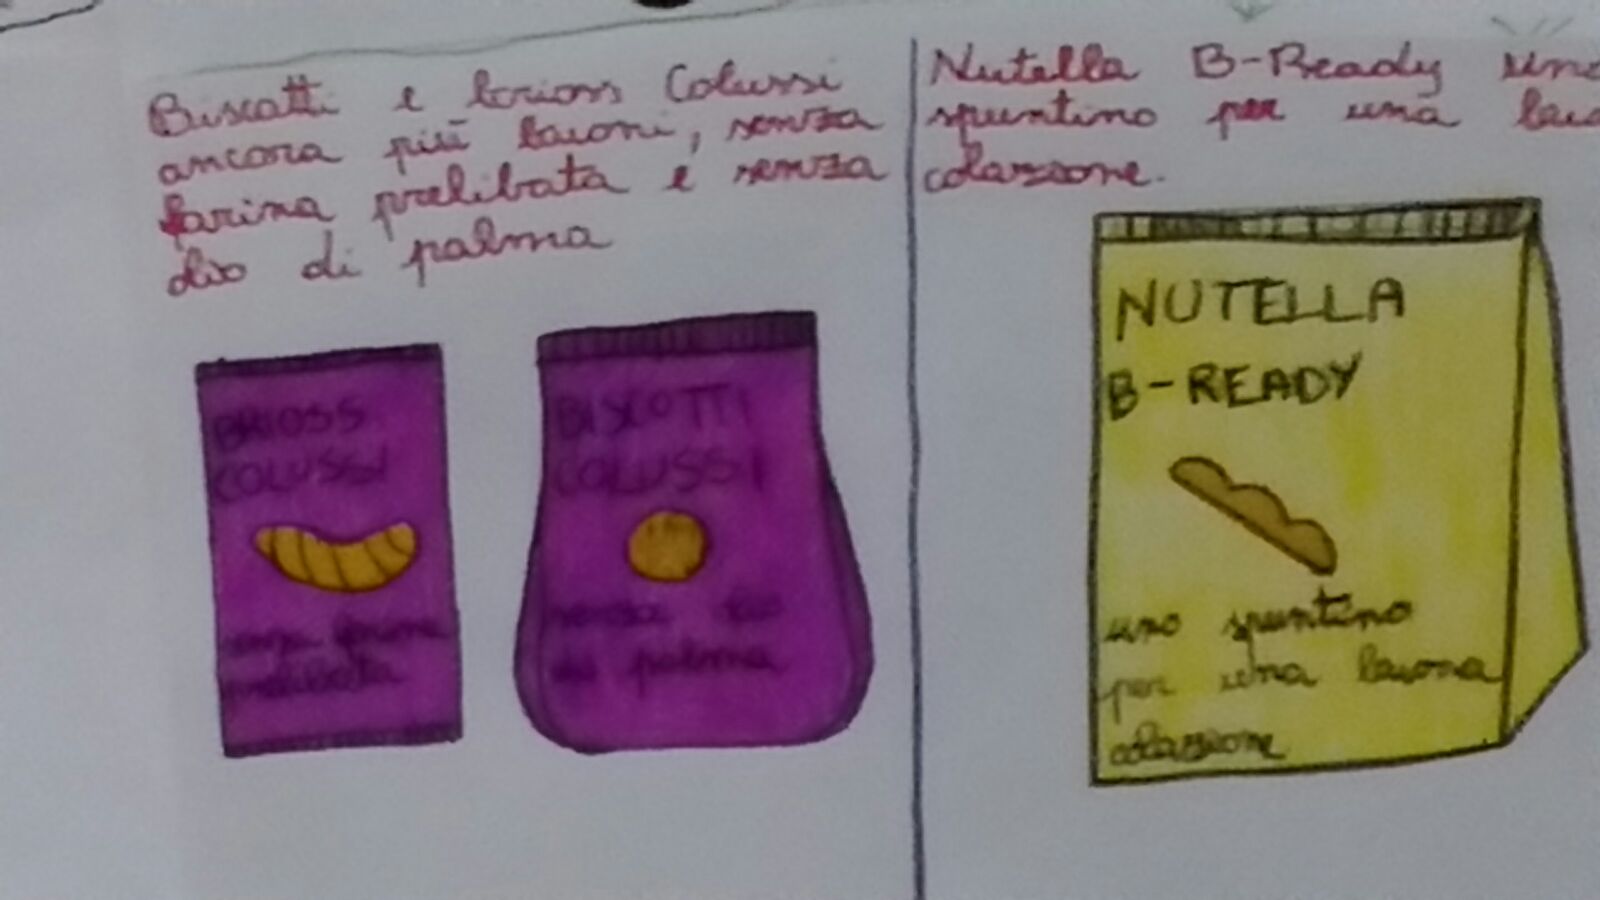 Biscotti e brioss Colussi
ancora più buoni, senza
farina prelibata e senza
olio di palma
BRIOSS
COLUSSI
senza farina
prelibata
BISCOTTI
COLUSSI
senza olio
di palma
Nutella B-Ready uno
spuntino per una
colazione.
NUTELLA
B-READY
uno spuntino
per una buona
colazione